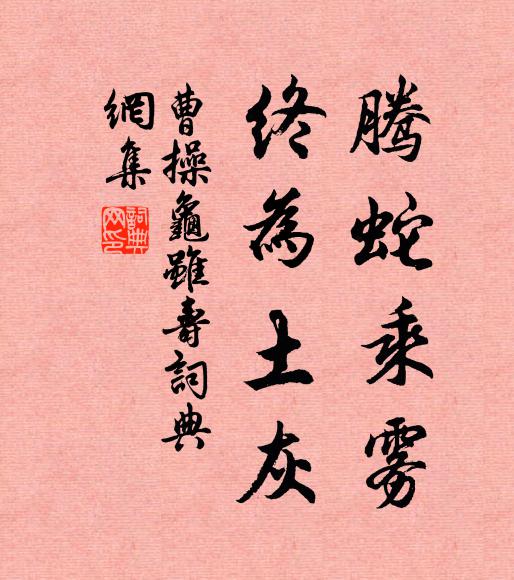 騰蛇乘霧
終為土灰
曹操龜雖壽詞典
網集
詞典
网印